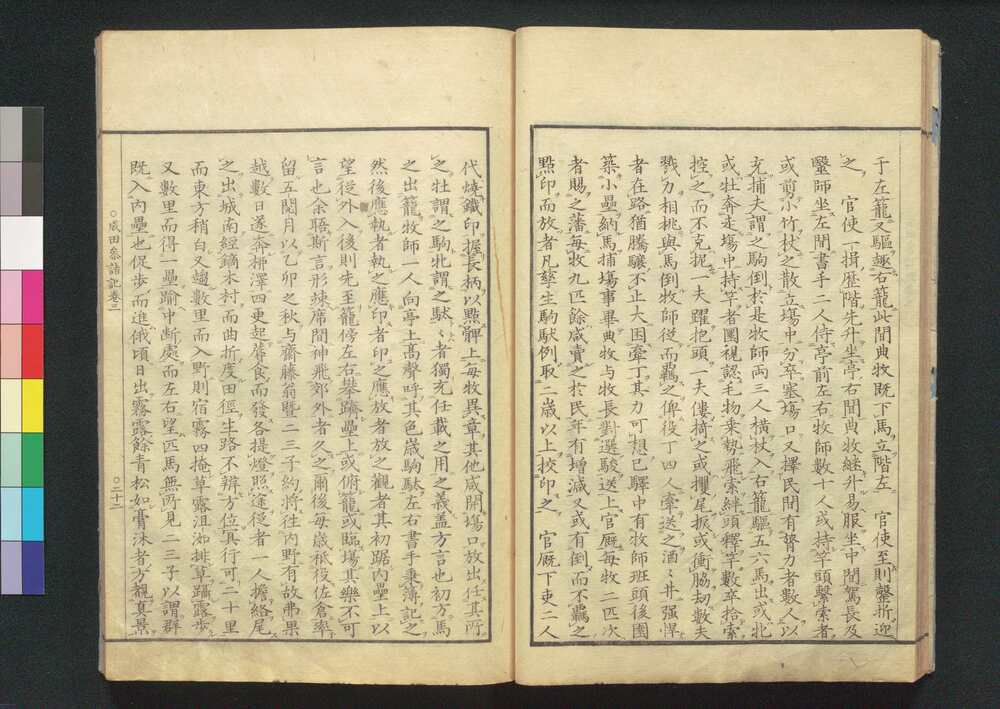 于左籠又驅趣右籠此間典牧既下馬立階左　官使至則磬折迎
之　官使一揖歴階先升坐亭右間典牧継升易服坐中間駕長及
毉師坐左間書手二人侍亭前左右牧師數十人或持竿頭繫索者
或剪小竹杖之散立塲中分卒塞塲口又擇民間有膂力者數人以
充捕夫謂之駒倒於是牧師両三人横杖入右籠驅五六馬出或牝
或牡奔走塲中持竿者團視認毛物乗勢飛索絆頭釋竿數卒拾索
控之而不克捉一夫躍抱頭一夫僂掎之或攫尾扳或衝脇刼數夫
戮力相挑與馬倒牧師従而羈之俾役丁四人牽送之酒々井强悍
者在路猶騰驤不止大困牽丁其力可想已驛中有牧師班頭後園
築小壘納馬捕塲事畢典牧与牧長對選駿送上官厩毎牧二匹次
者賜之藩毎牧九匹餘咸賣之於民年有増減又或有倒而不羈之
點印而放者凡孳生駒駄例取二歳以上挍印之　官厩下吏二人
代燒鐵印握長柄以點髀上毎牧異章其他咸開塲口放出任其所
之牡謂之駒牝謂之駄々者獨充任載之用之義盖方言也初方馬
之出籠牧師一人向亭上髙聲呼其色歳駒駄左右書手秉簿記之
然後應執者執之應印者印之應放者放之觀者其初踞内壘上以
望従外入後則先至籠傍左右攀躋壘上或俯籠或臨塲其樂不可
言也余聒斯言形竦席間神飛郊外者久之爾後毎歳袛役佐倉率
留五閲月以乙卯之秋与齋藤翁曁二三子約将往内野有故弗果
越數日遂奔栁澤四更起蓐食而發各提燈照途従者一人擔絡尾
之出城南經鏑木村而曲折度田徑生路不辨方位眞行可二十里
而東方稍白又趨數里而入野則宿霧四掩草露沮洳排草躡露歩
又數里而得一壘踰中断處而左右望匹馬無所見二三子以謂群
既入内壘也促歩而進俄頃日出霧霽餘青松如膏沐者方観眞景
○成田叅詣記巻三
○二十二